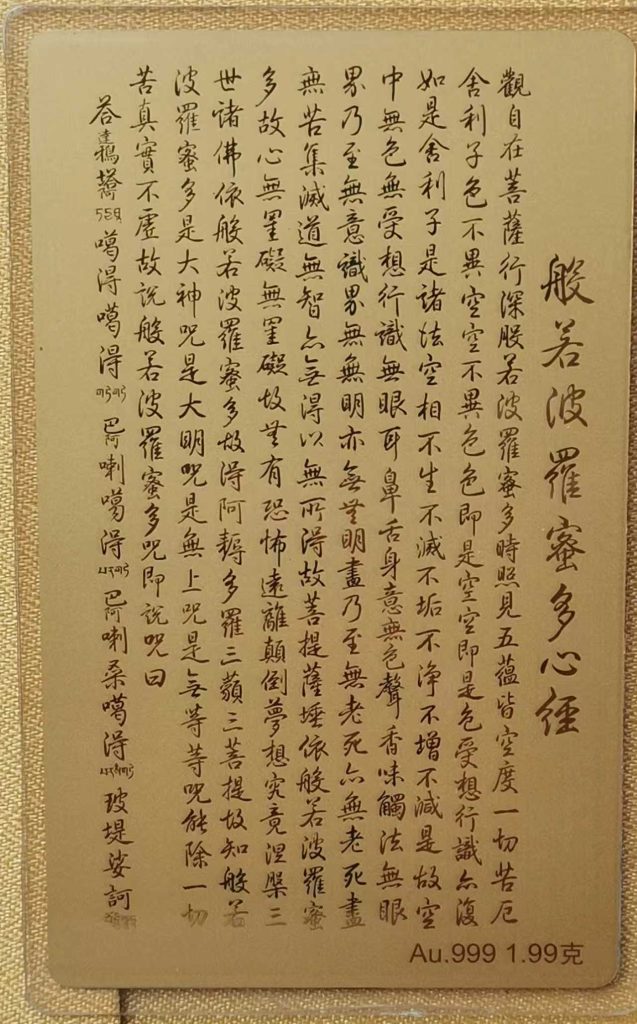 般若波羅蜜多心經
觀自在菩薩行深般若波羅蜜多時照見五蘊皆空度一切苦厄
舍利子色不異空空不異色色即是空空即是色受想行識亦復
如是舍利子是諸法空相不生不滅不垢不淨不增不減是故空
中無色無受想行識無眼耳鼻舌身意無色聲香味觸法無眼
界乃至無意識界無無明亦無無明盡乃至無老死亦無老死盡
無苦集滅道無智亦無得以無所得故菩提薩埵依般若波羅蜜
多故心無罣礙無罣礙故無有恐怖遠離顛倒夢想究竟涅槃三
世諸佛依般若波羅蜜多故得阿耨多羅三藐三菩提故知般若
波羅蜜多是大神咒是大明咒是無上咒是無等等咒能除一切
苦真實不虛故說般若波羅蜜多咒即說咒曰
噶得噶得巴阿喇噶得巴阿喇桑噶得玻堤娑訶
Au.999 1.99克